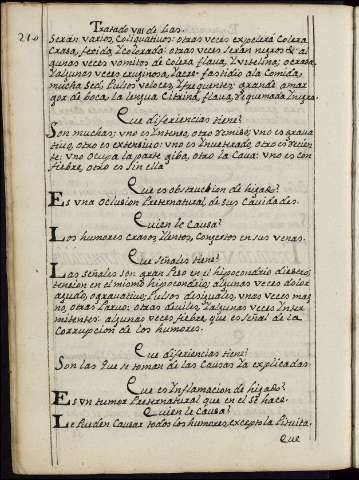 210
Tratado VIII de Las
Seràn varios, Coliquativos: otras veces expelerá Colera
Crasa, fetida, Y colorada: otras veces seràn negros &ª al
gunas veces vomitos de colera flava, Y vitelina; o crasa,
Y algunas veces eruginosa, Y acre: fastidio a la Comida,
mucha Sed, Pulsos veloces, Y frequentes: grande amar
gor de boca, la lengua Citrina, flava, Y quemada, Y nigra.
Que diferiencias tiene?
Son muchas: uno es Yntenso, otro remiso; uno es grava
tivo, otro es extensivo: uno es Ynvetrado, otro es recien
te: Uno Ocupa la parte giba, otro la Cava: uno es con
fiebre, otro es sin ella
Que es obstruccion de higado?
Es Una Oclusion Preternatural de sus Cavidades.
Quien le Causa?
Los humores Crasos, Y lentos, Congestos en sus venas.
Que Señales tiene?
Las señales son gran Peso en el hipocondrio diestro;
tension en el mismo hipocondrio; algunas veces dolor
agudo, o gravativo; Pulsos desiguales, unas veces mag
no, otras Parvo: otras deviles, Y algunas veces Ynter
mitentes: algunas veces fiebre, que es señal de la
Corrupcion de los humores.
Que diferiencias tiene?
Son las que se toman de las Causas Ya explicadas.
Que es Ynflamacion de higado?
Es Un tumor Preternatural que en el se hace.
Quien le Causa?
Le Pueden Causar todos los humores, excepto la Pituita,
que